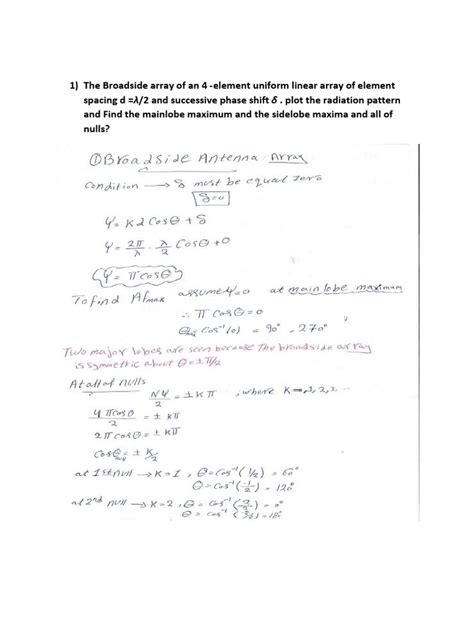 1) The Broadside array of an 4 -element uniform linear array of element
spacing d =λ/2 and successive phase shift δ . plot the radiation pattern
and Find the mainlobe maximum and the sidelobe maxima and all of
nulls?
① Broadside Antenna Array
Condition → δ must be equal zero
δ=0
Ψ= Kd Cosθ + δ
Ψ= 2π/λ . λ/2 Cosθ +0
Ψ= π cosθ
To find Afmax assume Ψ=0 at main lobe maximum
∴ π Cosθ = 0
Cos⁻¹(0) = 90°, 270°
Two major lobes are seen because The broadside array
is symmetric about θ = ±π/2
At all of nulls NΨ/2 = ±Kπ , where K=1,2,3, ...
4πcosθ/2 = ± Kπ
2πcosθ = ± Kπ
Cosθ = ± K/2
at 1st null → K=1 , θ = Cos⁻¹(1/2) = 60°
θ = Cos⁻¹(-1/2) = 120°
at 2nd null → K=2, θ = Cos⁻¹(2/2) = 0°
θ = Cos⁻¹(-2/2) = 180°